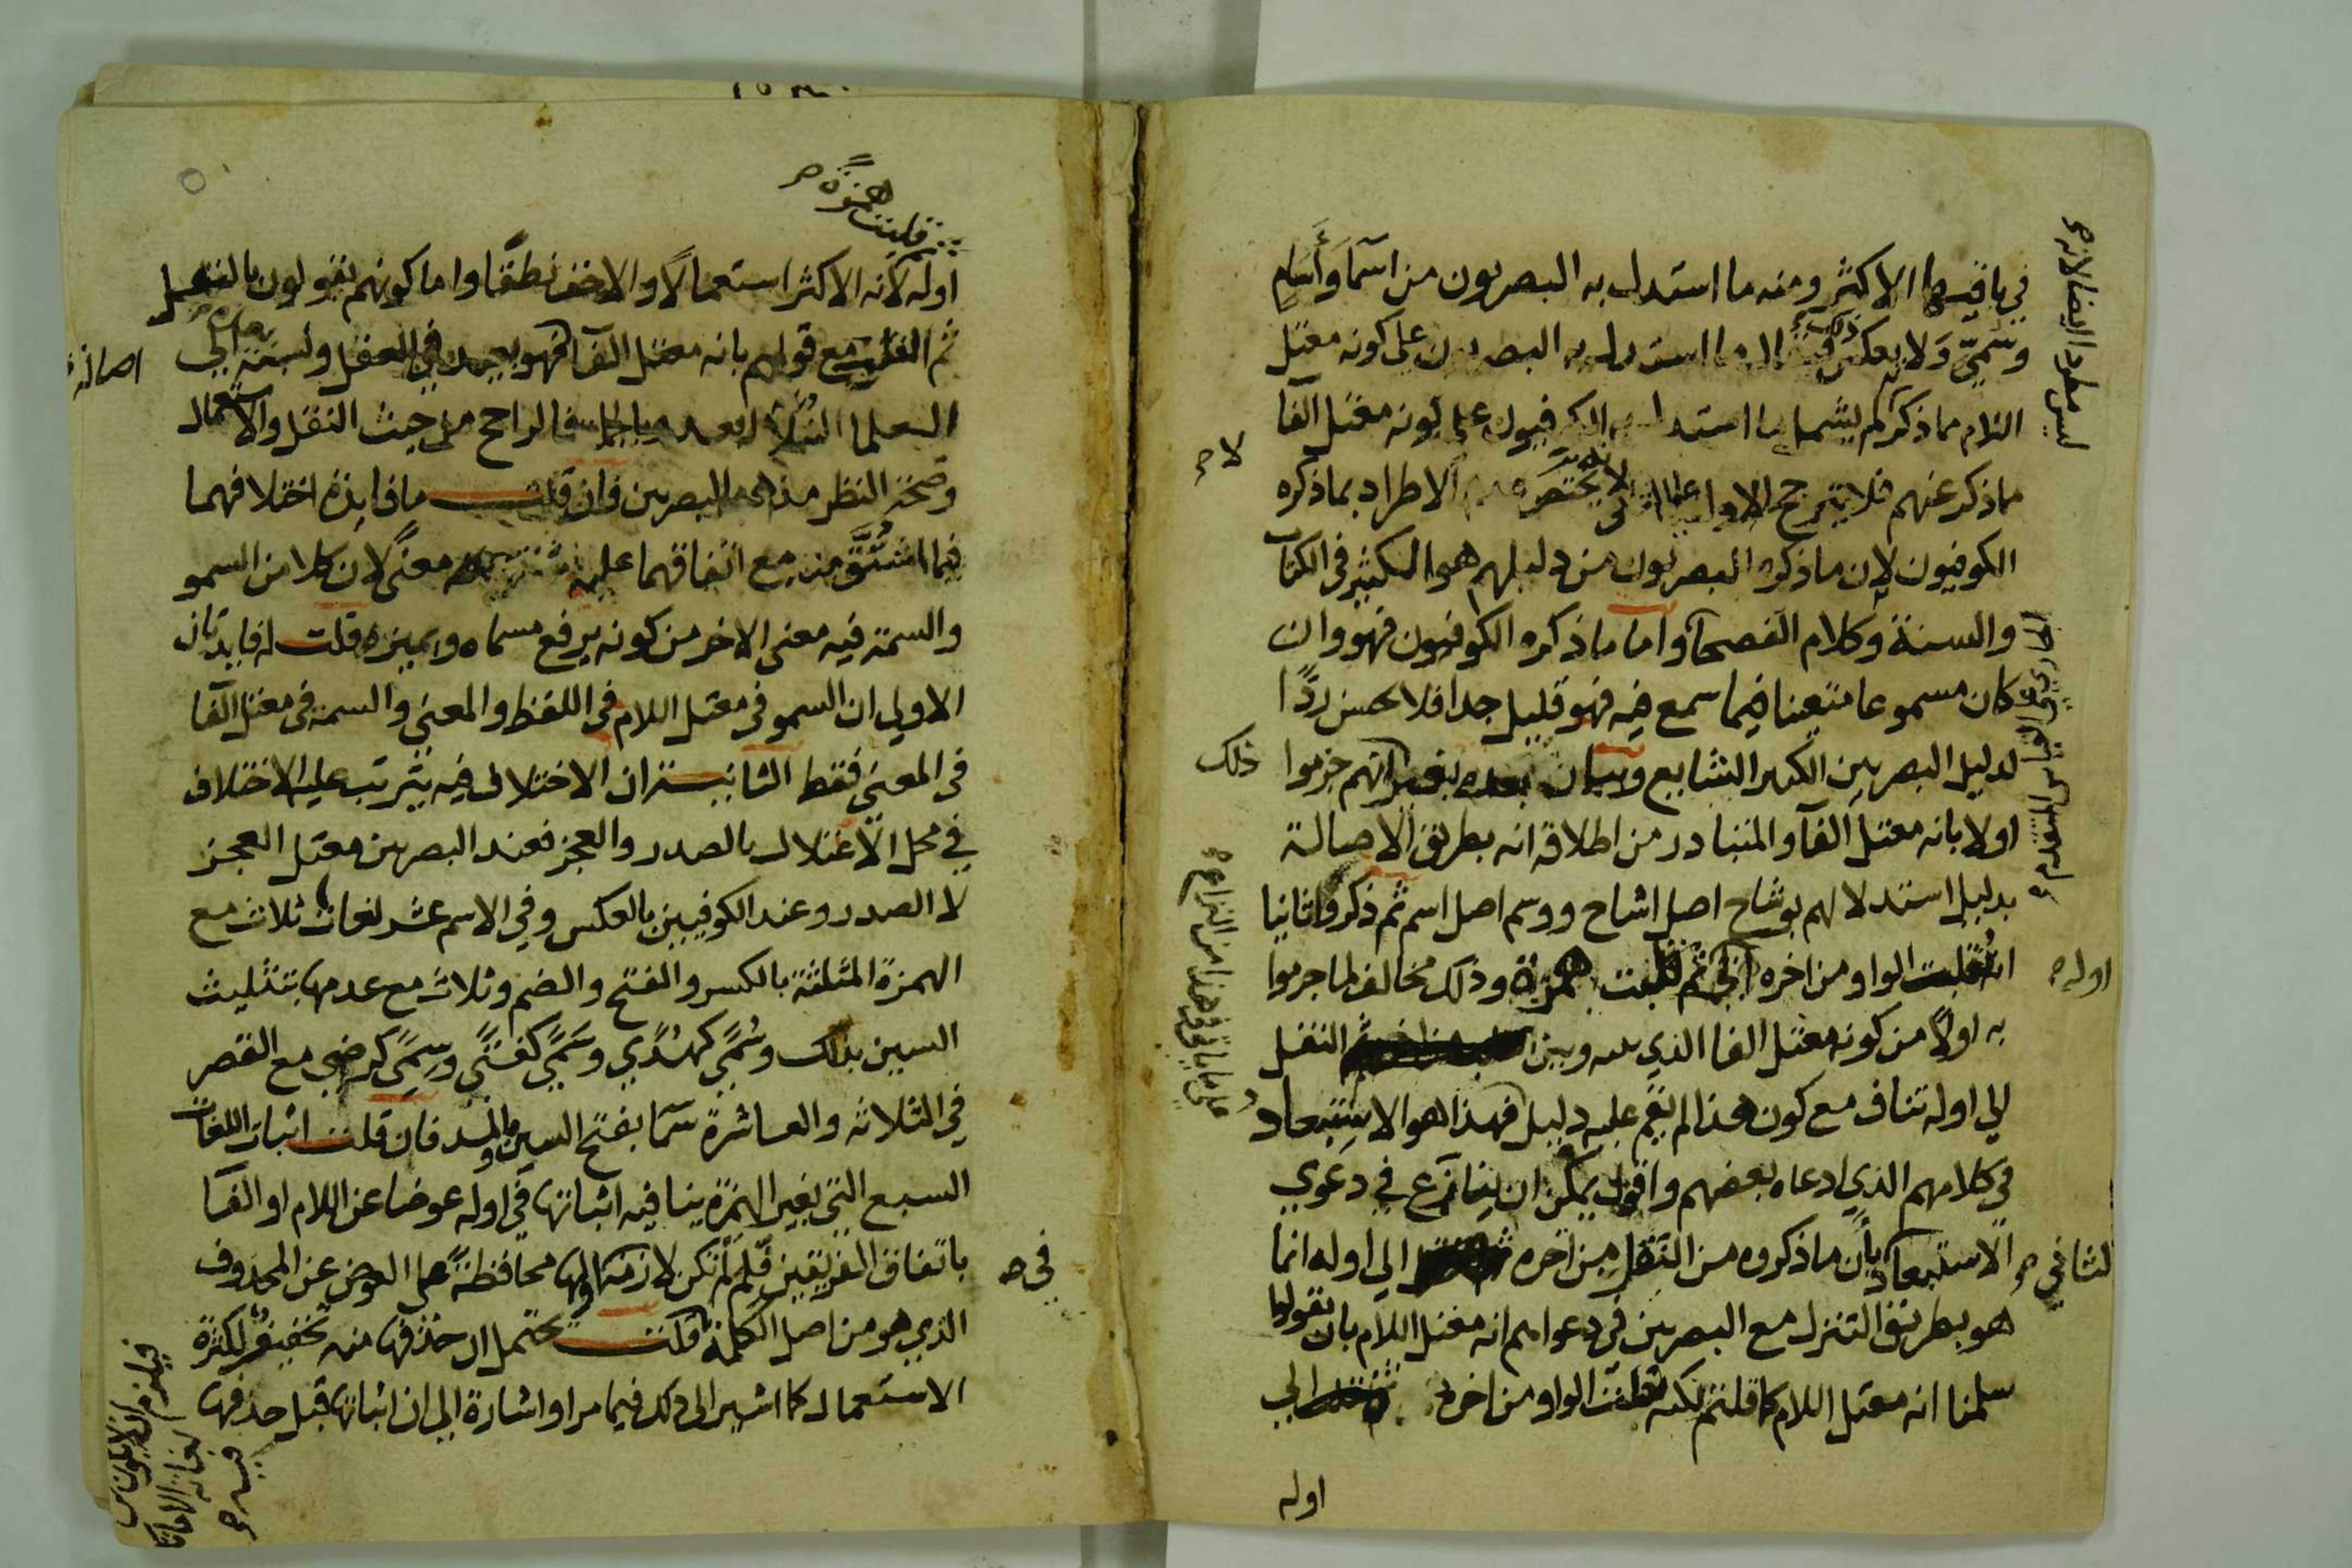 في باقيها الاكثر ومنه ما استدل به البصريون من اسما وأسام
وسمي ولا يعكس ذلك ما استدل به البصريون على كونه معتل
اللام مما ذكر لم يشمل ما استدل به الكوفيون على كونه معتل الفا
ماذكر عنهم فلا يترجح الاول على الثاني الاطراد بما ذكره
الكوفيون لان ما ذكره البصريون من دليلهم هو الكثير في الكتاب
والسنة وكلام الفصحا واما ما ذكره الكوفيون فهو وان
كان مسموعا متعينا فيما سمع فيه فهو قليل جدا فلا يحسن ردًّا
لدليل البصريين الكثير الشايع وبيان بعده انهم جزموا
اولا بانه معتل الفآ والمتبادر من اطلاقه انه بطريق الاصالة
بدليل استدلالهم بوشاح اصل اشاح ووسم اصل اسم ثم ذكروا ثانيا
الواو من اخره الى ثم قلبت همزة وذلك مخالف لما جزموا
به اولًا من كونه معتل الفا الذي بينه وبين النقل
الي اوله تناف مع كون هذا لم يقم عليه دليل فهذا هو الاستبعاد
في كلامهم الذي ادعاه بعضهم واقول يمكن ان ينازع في دعوي
الاستبعاد بأن ما ذكروه من النقل من آخره الي اوله انما
هو بطريق التنزل مع البصريين في دعواهم انه معتل اللام بان يقولوا
سلمنا انه معتل اللام كما قلتم لكنه نقلت الواو من اخره الي
اوله
ليس مطردا ايضا لانه صح
لا صح
ذلك
اوله صح
الثاني صح
قلبت همزة صح
اوله لانه الاكثر استعمالًا والاخف نطقًا واما كونهم يقولون بالنقل
ثم القلب مع قولهم بانه معتل الفآ فهو بعيد في العقل ونسبته الي
العلما النبلا بعيدة وبالجملة فالراجح من حيث النقل والاستعمال
وصحة النظر مذهب البصريين فان قلت ما فايدة اختلافهما
فيما اشتق منه مع اتفاقهما عليه معنًى لان كلا من السمو
والسمة فيه معنى الاخر من كونه يرفع مسماه ويميزه قلت له فايدتان
الاولي ان السمو في معتل اللام في اللفظ والمعني والسمة في معتل الفآ
في المعني فقط الثانية ان الاختلاف فيه يترتب عليه الاختلاف
في محل الاعتلال بالصدر والعجز فعند البصريين معتل العجز
لا الصدر وعند الكوفيين بالعكس وفي الاسم عشر لغات ثلاث مع
الهمزة المثلثة بالكسر والفتح والضم وثلاث مع عدمها بتثليث
السين بذلك وسُمًى كهدًي وسَمًي كفتًي وسِمًي كرضي مع القصر
في الثلاثه والعاشرة سَمَا بفتح السين والمد فان قلت اثبات اللغات
السبع التي بغير الهمزة ينافيه اثباتها في اوله عوضا عن اللام او الفآ
باتفاق الفريقين فلم لم تكن لازمة اولها محافظةً على العوض عن المحذوف
الذي هو من اصل الكلمة قلت يحتمل ان حذفها منه تخفيف لكثرة
الاستعمال كما اشير الى ذلك فيما مر او اشارة الي ان اثباتها قبل حذفها
اصالة
في صح